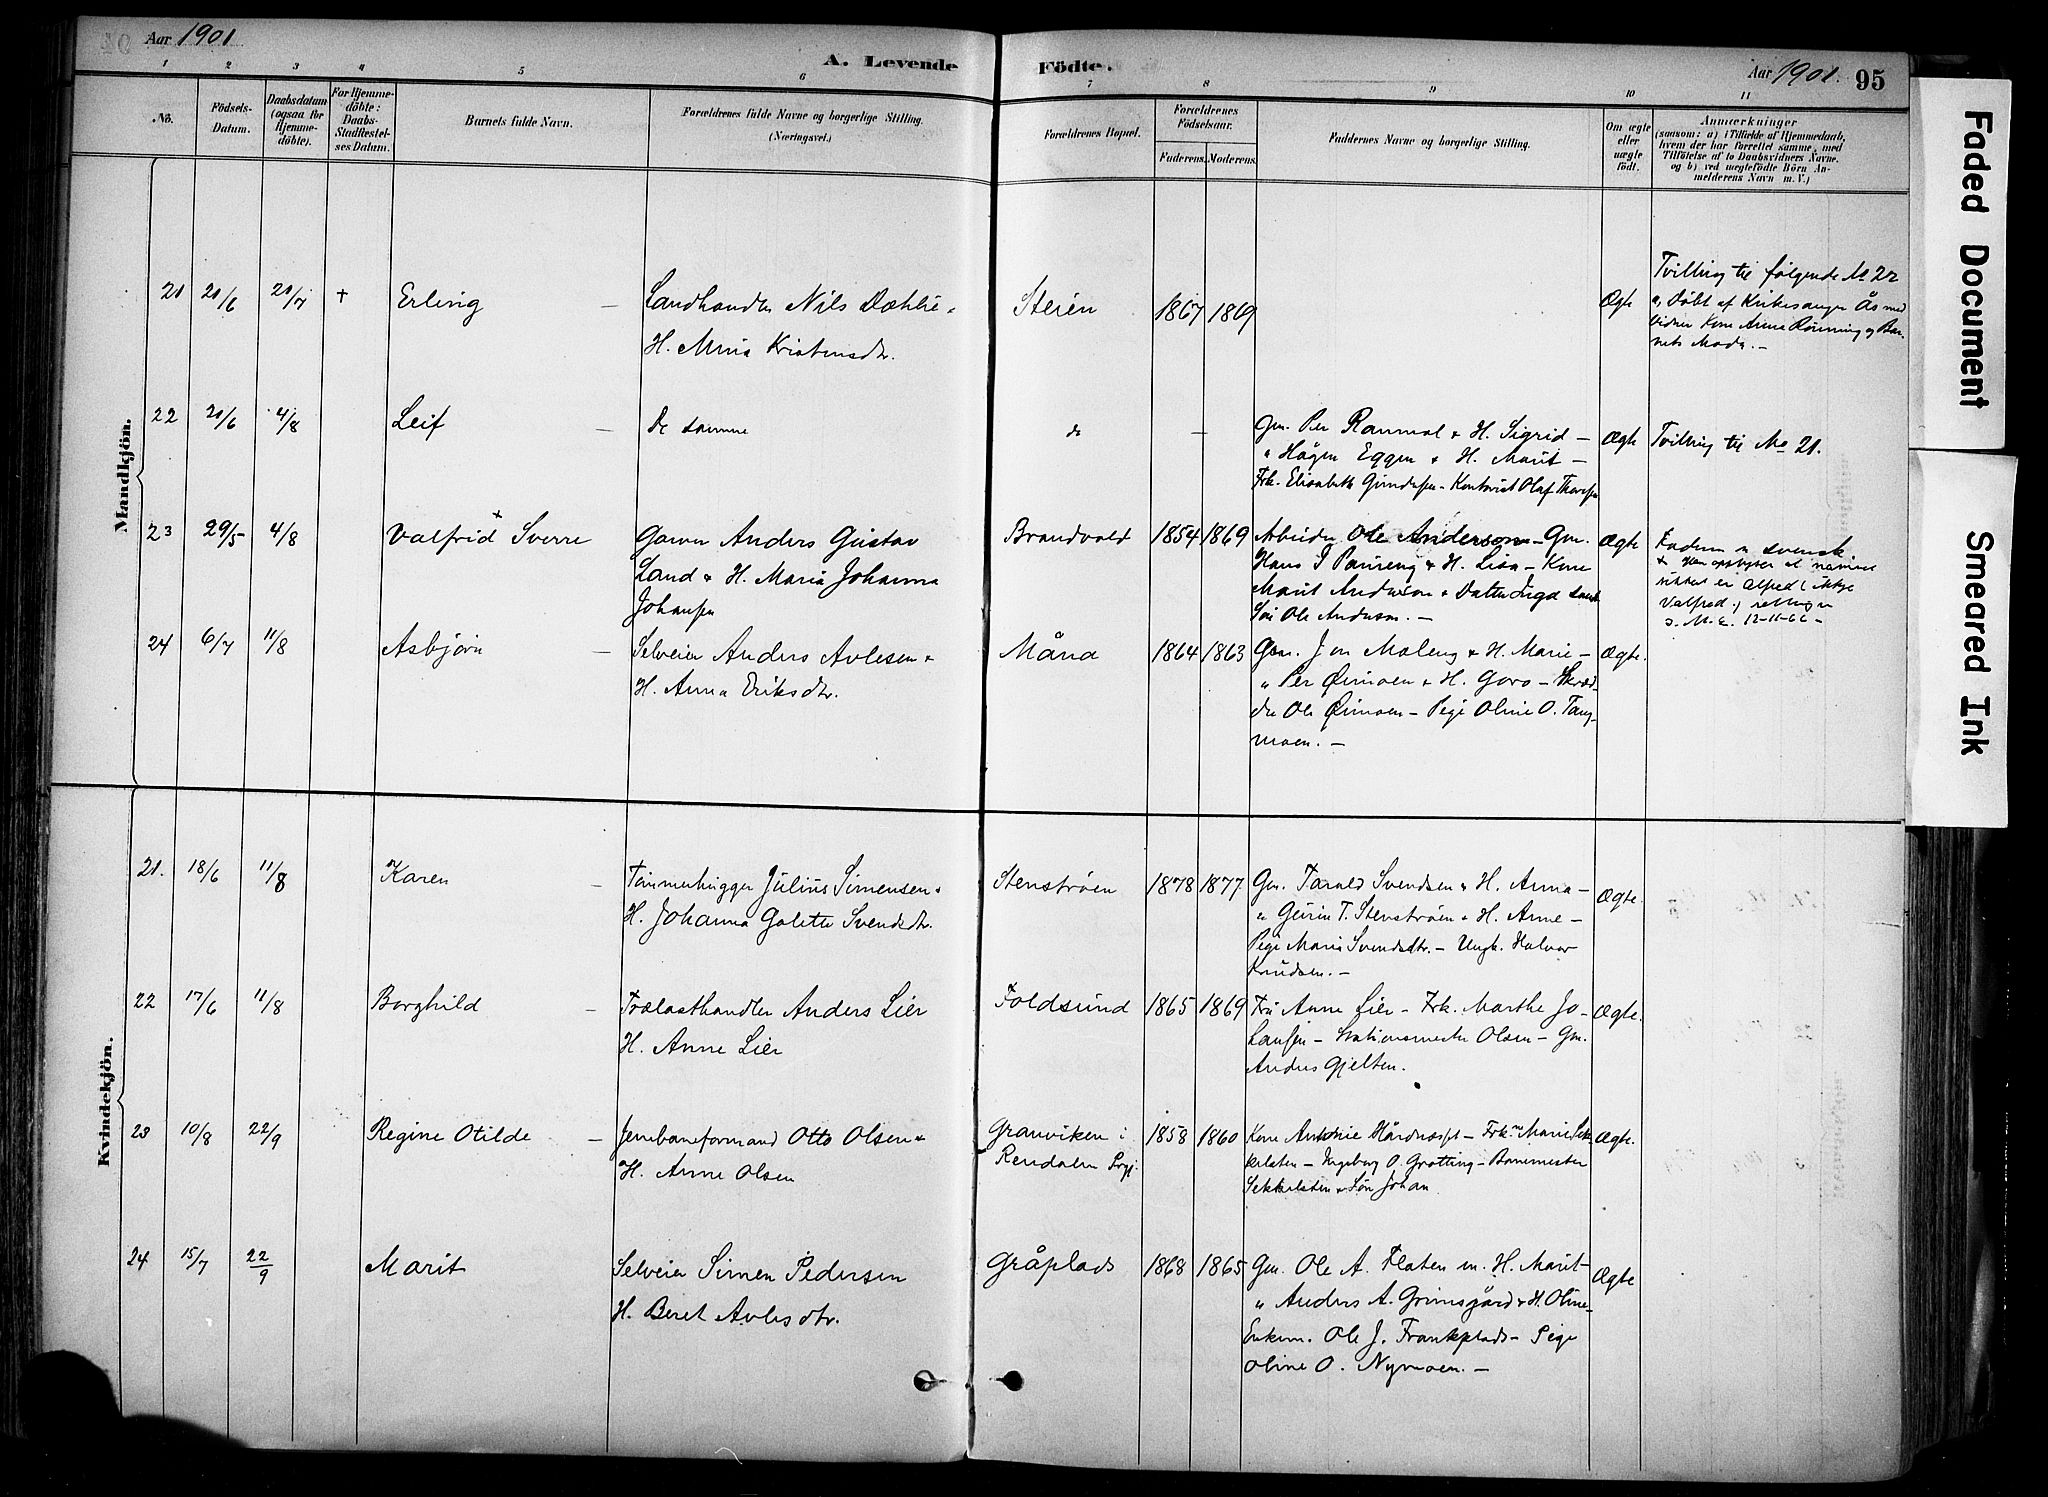 Aar 1901
A. Levende Födte.
Aar 1901. 95
1 2 3 4 5 6 7 8 9 10 11
No.
Födsels-
Datum.
Daabsdatum
(ogsaa for
Hjemme-
döbte).
For Hjemme-
döbte:
Daabs-
Stadfæstel-
ses Datum.
Barnets fulde Navn.
Forældrenes fulde Navne og borgerlige Stilling.
(Næringsvei.)
Forældrenes Bopæl.
Forældrenes
Födselsaar.
Faderens. Moderens.
Faddernes Navne og borgerlige Stilling.
Om ægte
eller
uægte
födt.
Anmærkninger
(saasom: a) i Tilfælde af Hjemmedaab,
hvem der har forrettet samme, med
Tilföielse af to Daabsvidners Navne.
og b) ved uægtefödte Börn An-
melderens Navn m. V.)
Mandkjön.
21 21/6 21/7 + Erling –
Landhandler Nils Dæhlie &
H. Mina Kristensdtr.
Steien 1867 1869
Ægte
Tvilling til følgende No 22
døbt af Kirkesanger Ås med
Vidner Kone Anna Rønning og Bar-
nets Moder. –
22 21/6 4/8 Leif –
De samme
do –
Gm. Per Ranmæl & H. Sigrid –
" Hågen Eggen & H. Marit –
Frk. Elisabeth Gundersen – Kontorist Olaf Thoresen
Ægte
Tvilling til No 21.
23 29/5 4/8 Valfrid + Sverre
Garver Anders Gustav
Land & H. Maria Johanna
Johansen
Brandvold 1854 1869
Arbeider Ole Anderson – Gm.
Hans J Paureng & H. Lisa – Kone
Marit Anderson & Datter Inga samt
Søn Ole Anderson. –
Ægte
Faderen er svensk.
12-11-66 –
24 6/7 11/8 Asbjørn –
Selveier Anders Avlesen &
H. Anna Eriksdtr.
Måna 1864 1863
Gm. Jon Moleng & H. Marie –
" Per Øimoen & H. Goro – Skræd-
der Ole Øimoen – Pige Oline O. Tang-
moen. –
Ægte.
Kvindekjön.
21. 18/6 11/8 Karen –
Tømmerhugger Julius Simensen &
H. Johanna Golette Svendsdtr.
Stenstrøen 1878 1877
Gm. Tarald Svendsen & H. Anna –
" Guri T. Stenstrøen & H. Anne –
Pige Maria Svendsdtr. – Ungk. Halvor
Knudsen. –
Ægte.
22 17/6 11/8 Borghild –
Trælasthandler Anders Lier
H. Anne Lier
Foldsund 1865 1869
Fru Anne Lier – Frk. Marthe Jo-
hansen – Stationsmester Olsen – Gm.
Anders Gjelten.
Ægte.
23 10/8 22/9 Regine Otilde –
Jernbaneformand Otto Olsen &
H. Anne Olsen
Granviken i
Rendalen Prgj.
1858 1860
Kone Antonie Hårdnæsset – Frk.ne Marie Sek-
kelsten – Ingeborg O. Grøtting – Banemester
Sekkelsten & Søn Johan
Ægte.
24 15/7 22/9 Marit
Selveier Simen Pedersen
H. Beret Avlesdtr.
Gråplads 1868 1865
Gm. Ole A. Flaten m. H. Marit –
" Anders A. Grimsgård & H. Oline –
Enkem. Ole J. Frankplads – Pige
Oline O. Nymoen. –
Ægte
Faded Document
Smeared Ink